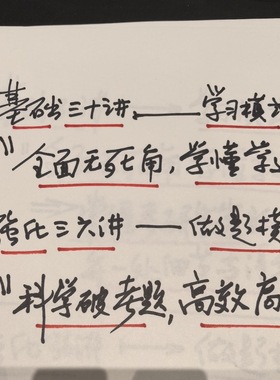 基础三十讲——学习模
"全面无死角,学懂学
强化三六讲——做题模
"科学破考题,高效高